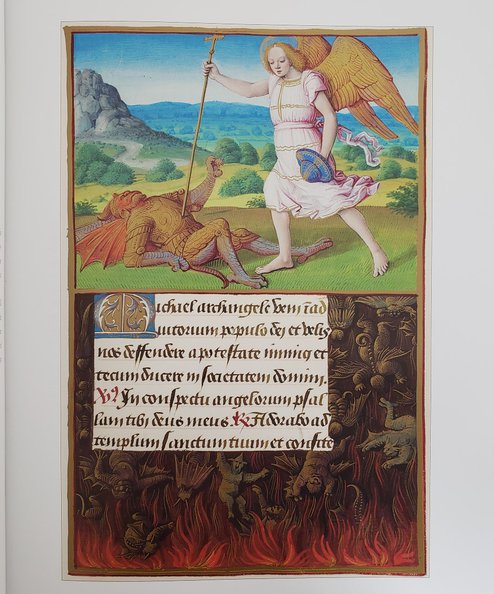 Michael archangele veni i͞ ad
iutorium populo dei et velis
nos deffendere a potestate inimig et
tecum ducere in societatem domini.
℣ In conspectu angelorum psal
lam tibi deus meus. ℟ Adorabo ad
templum sanctum tuum et confite